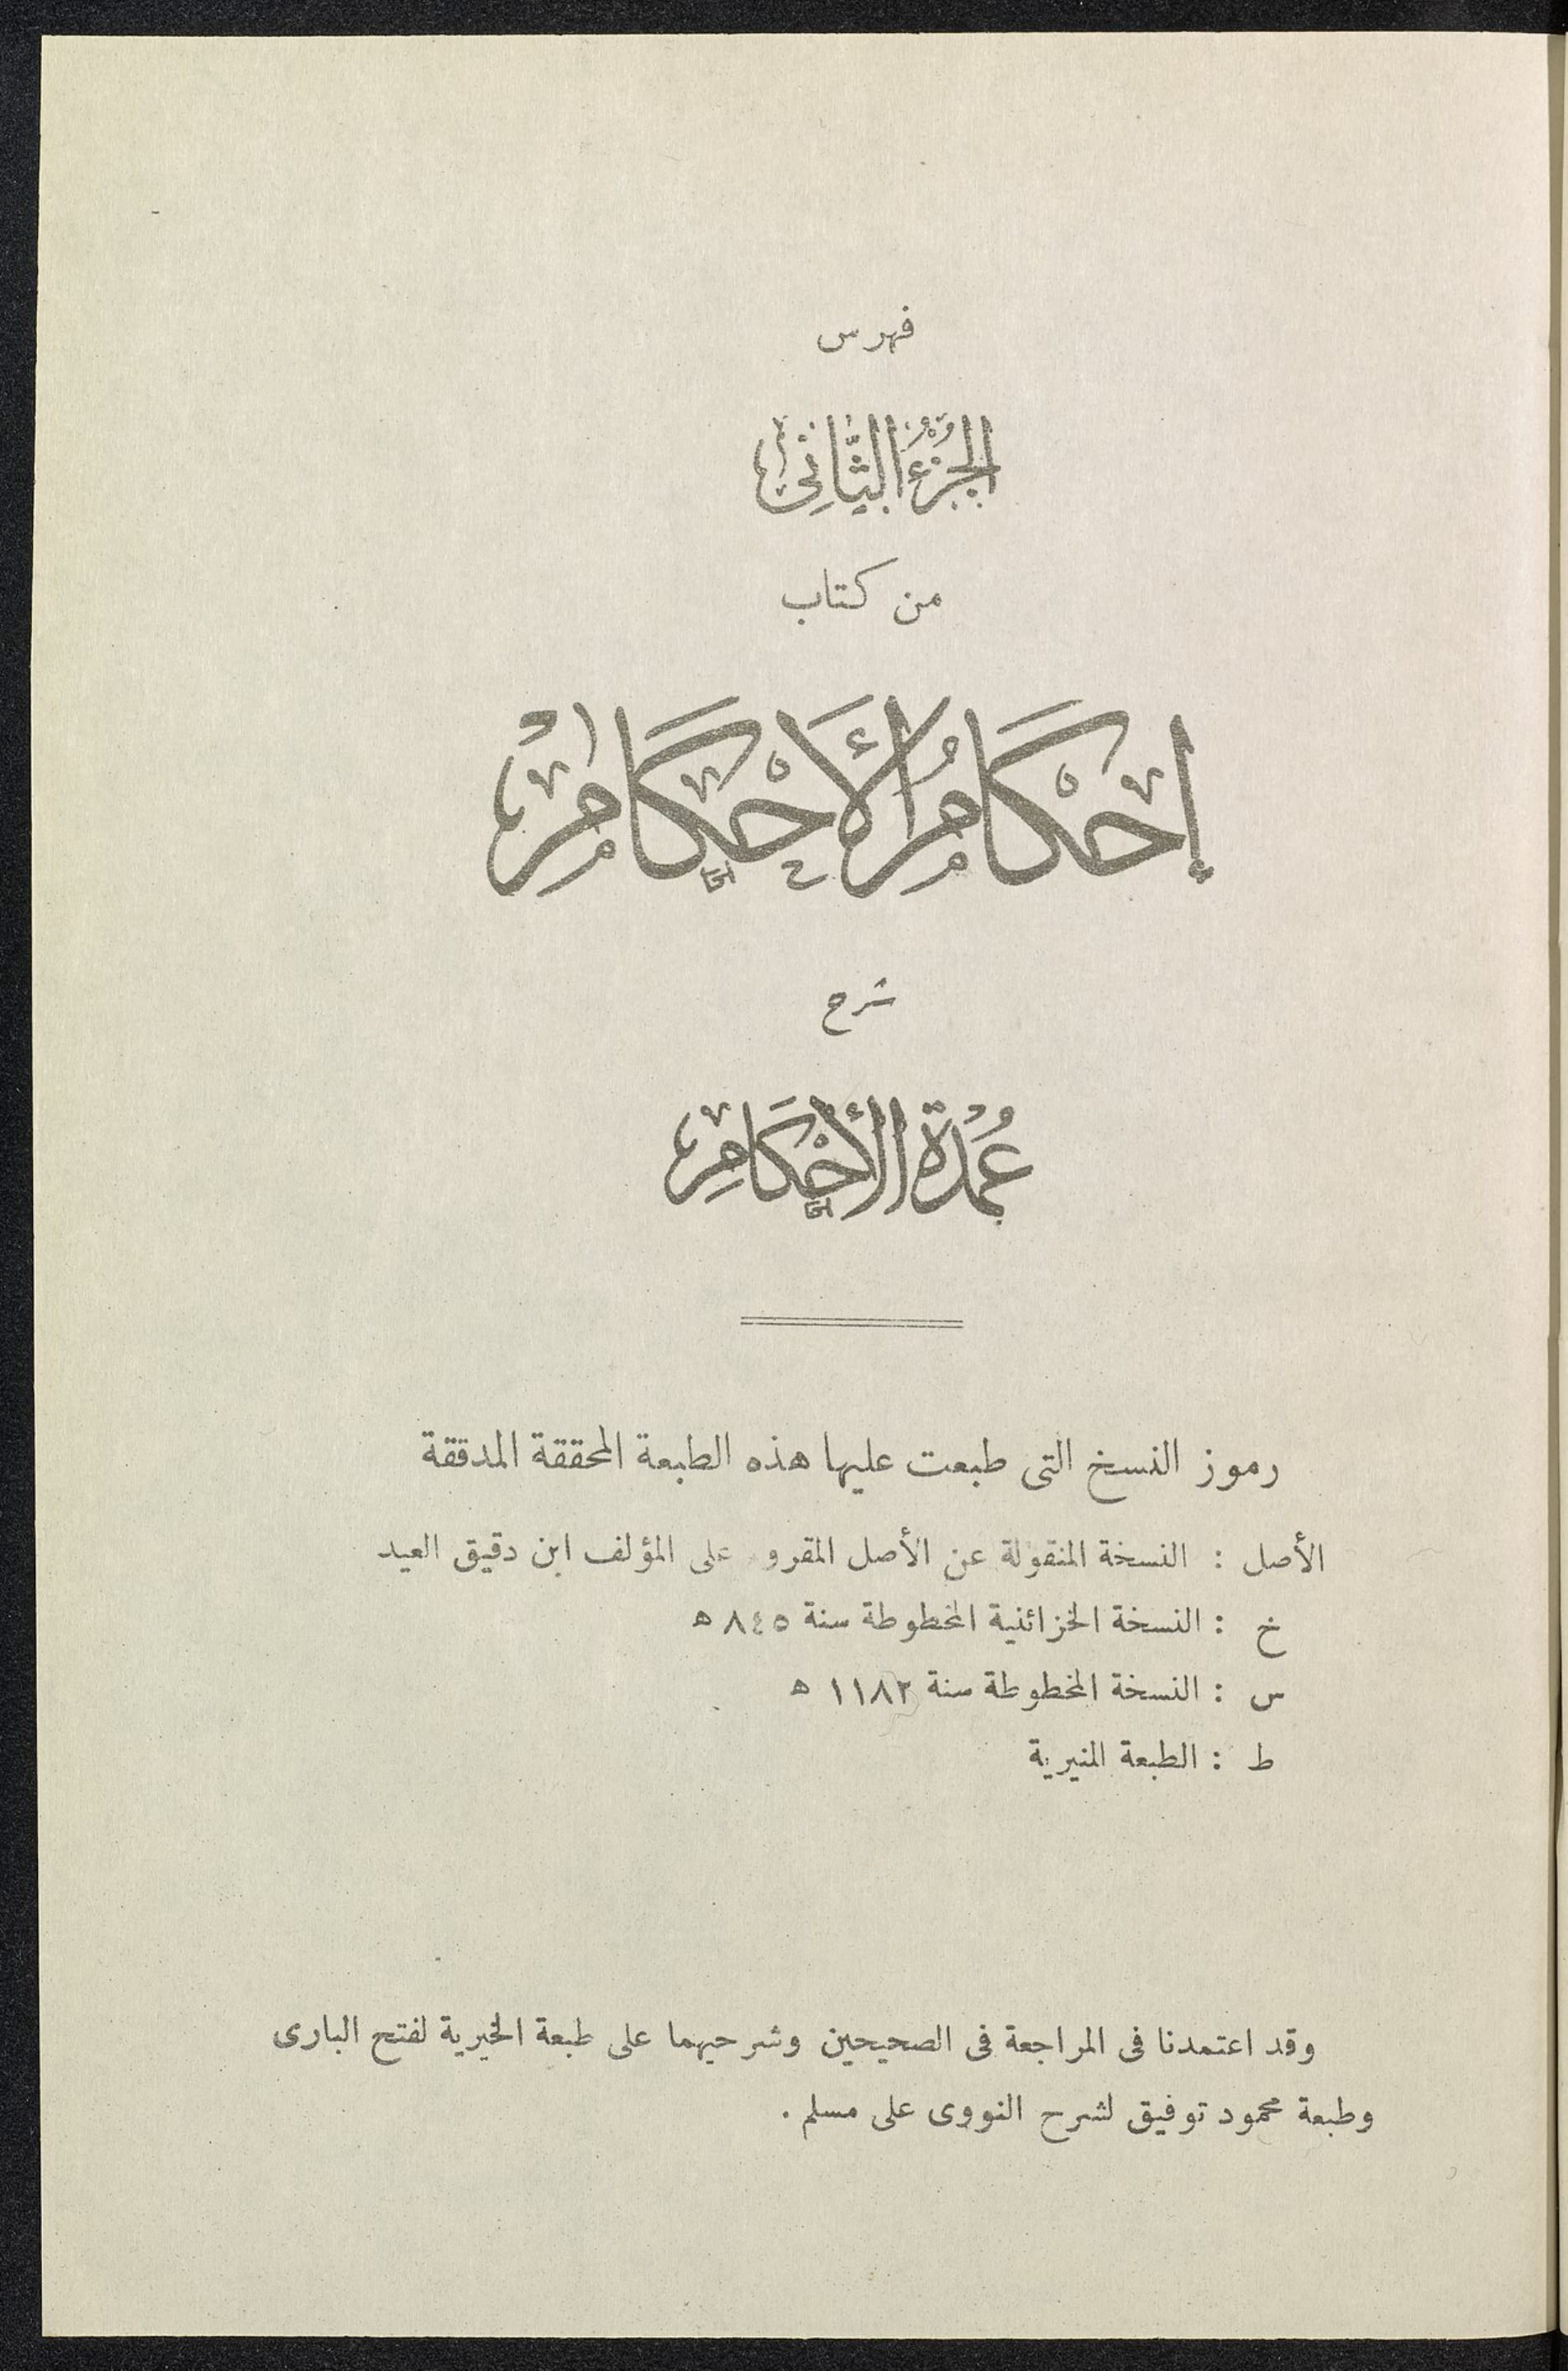 فهرس
الجُزْءُ الثَّانِى
من كتاب
إِحْكَامُ الأَحْكَامِ
شرح
عُمْدَةُ الأَحْكَامِ
رموز النسخ التى طبعت عليها هذه الطبعة المحققة المدققة
الأصل : النسخة المنقولة عن الأصل المقرو على المؤلف ابن دقيق العيد
خ : النسخة الخزائنية المخطوطة سنة ٨٤٥ ه
س : النسخة المخطوطة سنة ١١٨٢ ه
ط : الطبعة المنيرية
وقد اعتمدنا فى المراجعة فى الصحيحين وشرحيهما على طبعة الخيرية لفتح البارى
وطبعة محمود توفيق لشرح النووى على مسلم .